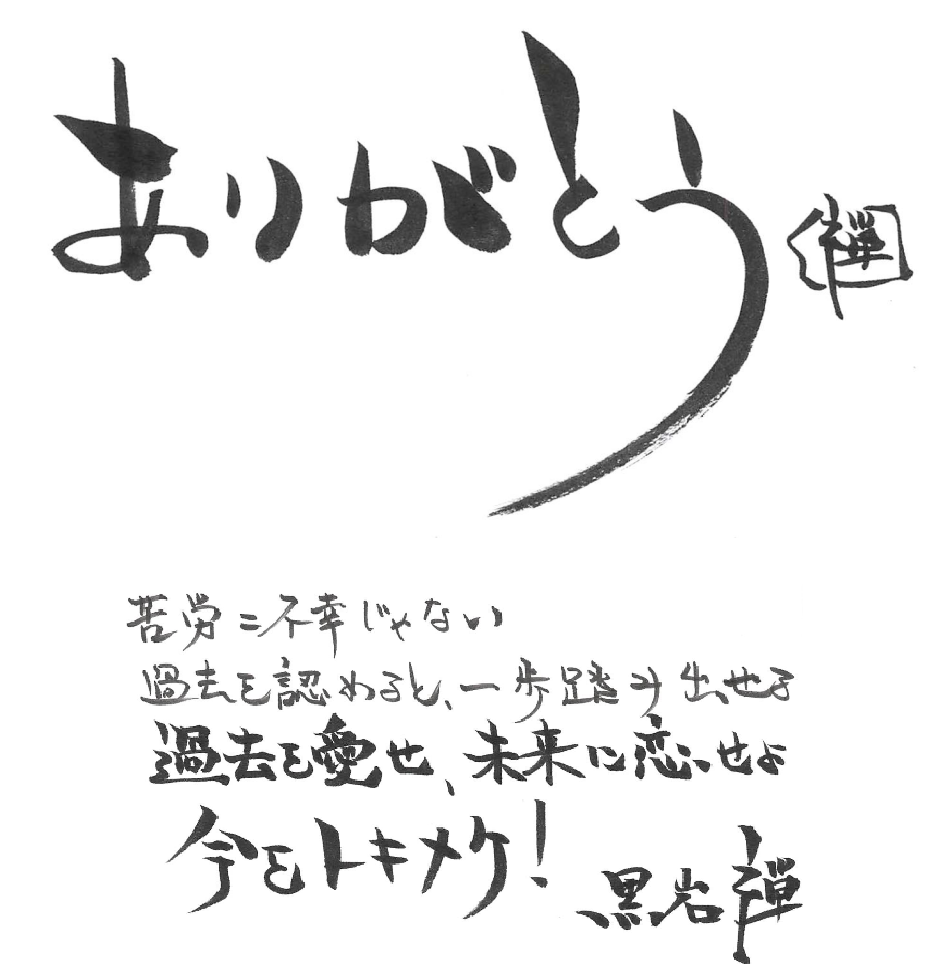 ありがとう
禅
苦労=不幸じゃない
過去を認めると、一歩踏み出せる
過去を愛せ、未来に恋せよ
今をトキメケ!
黒岩禅